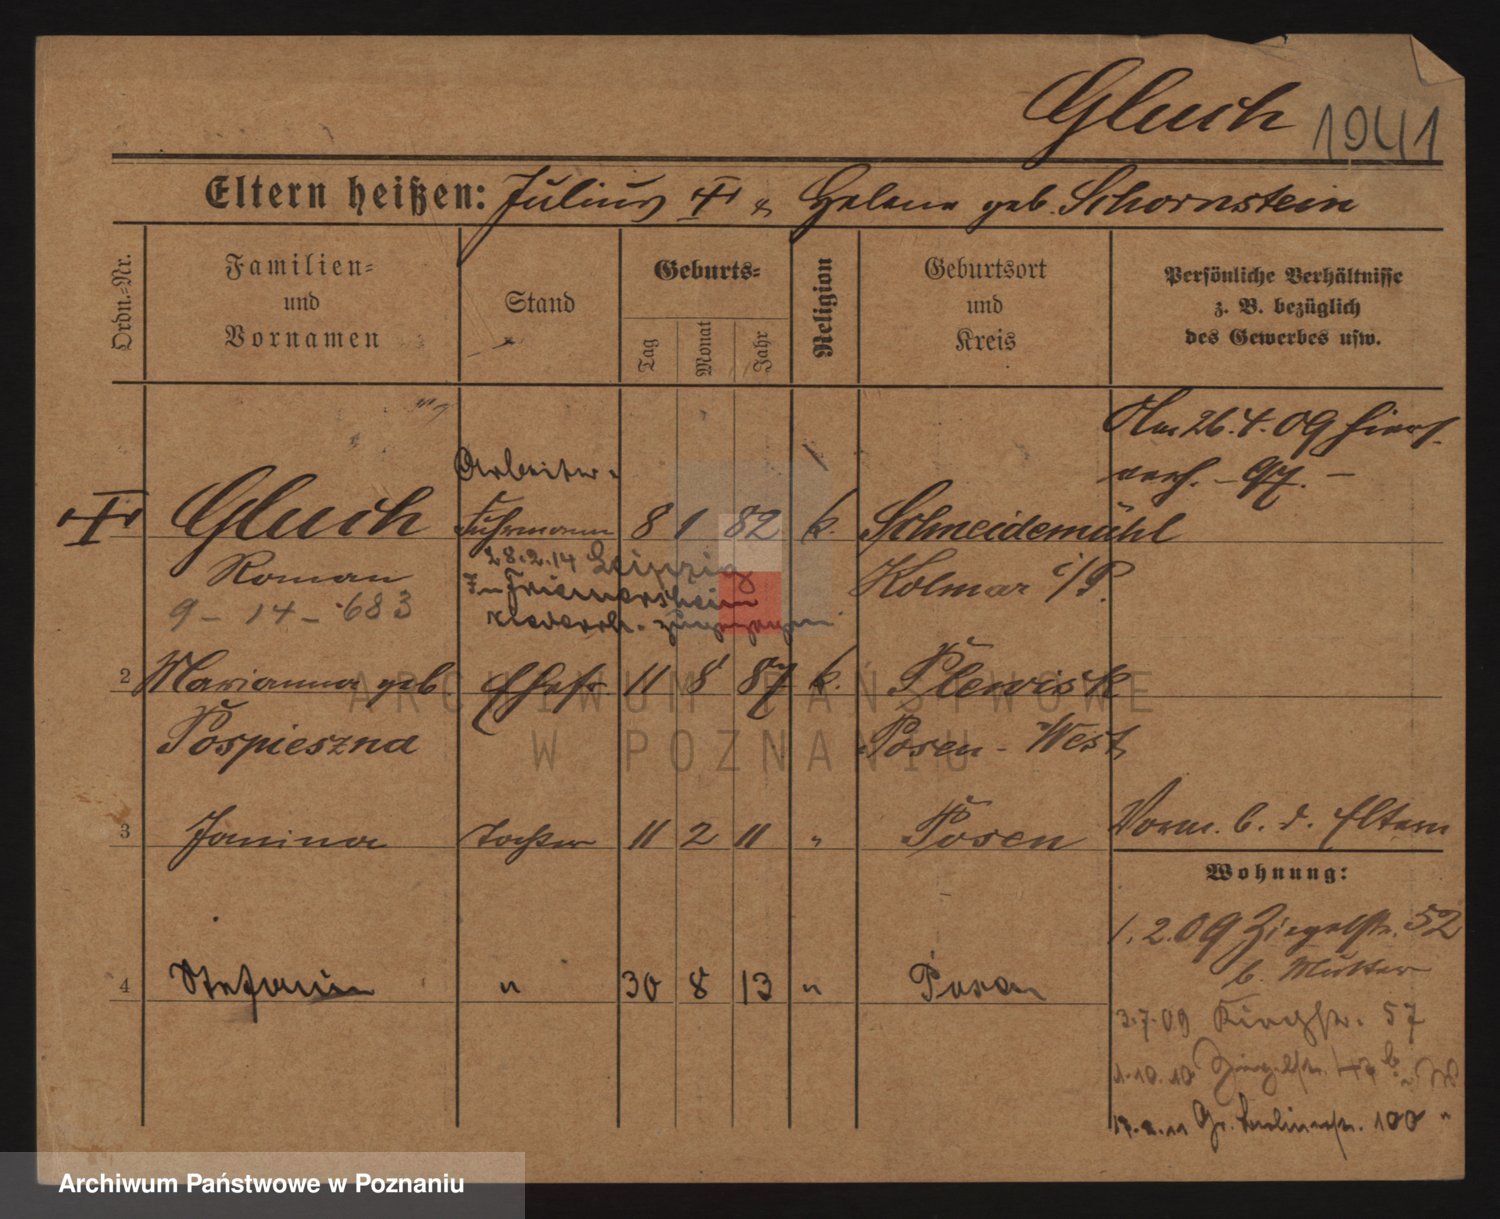 Gluch 1941
Eltern heißen: Julius & Helene geb. Schornstein
Ordn.=Nr.
Familien=
und
Vornamen
Stand
Geburts=
Tag
Monat
Jahr
Religion
Geburtsort
und
Kreis
Persönliche Verhältnisse
z. B. bezüglich
des Gewerbes usw.
Am 26.4.09 hiers.
verh. - 97. -
Arbeiter
Gluch Fuhrmann 8 1 82 k. Schneidemühl
Roman 28.2.14 Leipzig Kolmar i/P.
9 - 14 - 683 Friemersheim
zugezogen
2 Marianna geb. Ehefr. 11 8 87 k. Plewisk
Pospieszna Posen - West
3 Janina Tochter 11 2 11 " Posen Vorm. b. d. Eltern
Wohnung:
1.2.09 Ziegelstr. 52
b. Mutter
4 Stefanie " 30 8 13 " Posen
3.7.09 Kirchstr. 57
1.10.10 Ziegelstr.
Gr. Berlinerstr. 100 "
ARCHIWUM PAŃSTWOWE
W POZNANIU
Archiwum Państwowe w Poznaniu